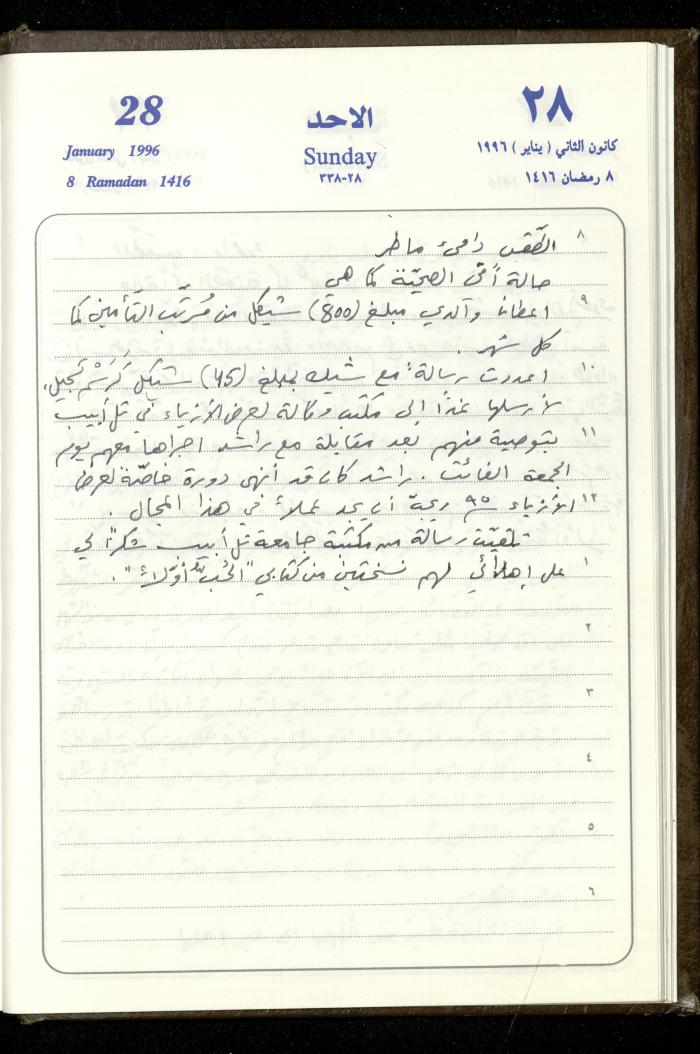 28
January 1996
8 Ramadan 1416
الاحد
Sunday
٢٨-٣٣٨
٢٨
كانون الثاني ( يناير ) ١٩٩٦
٨ رمضان ١٤١٦
٨
الطّقس دافئ ماطر
حالة أمّي الصحيّة كما هي
٩
اعطانا والدي مبلغ (800) شيكل من مُرتّب التّأمين كما
كل شهر .
١٠
اعددت رسالة مع شيك بمبلغ (45) شيكل كرَسْم تسجيل،
لأرسلها غدًا إلى مكتب وكالة لعرض الأزياء في تل أبيب
١١
بتوصية منهم بعد مقابلة مع راشد اجراها معهم يوم
الجمعة الفائت . راشد كان قد أنهى دورة خاصّة لعرض
١٢
الأزياء أن يجد عملاً في هذا المجال .
تلقّيت رسالة من مكتبة جامعة تل أبيب شكرًا لي
١
على إهدائي لهم نسختين من كتابي "الحُب أوّلاً" .
٢
٣
٤
٥
٦